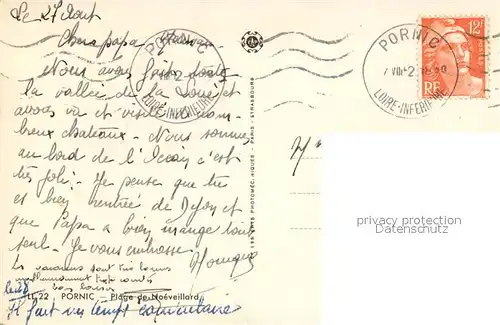 Le 27 Aout
Chers papa maman
Nous avons fait toute
la vallée de la Loire et
avons vu et visité de nom-
breux chateaux - Nous sommes
au bord de l'Océan c'est
très joli. Je pense que tu
es bien rentrée de Dijon et
que Papa a bien mangé tout
seul. Je vous embrasse.
Monique
Les vacances sont très bonnes
malheureusement trop courtes
bons baisers
LL 22 PORNIC - Plage de Noëveillard
le 28
Il fait un temps
PORNIC
LOIRE-INFERIEURE
PORNIC
LOIRE-INFERIEURE
12F
RF
PARIS - STRASBOURG
M
privacy protection
Datenschutz